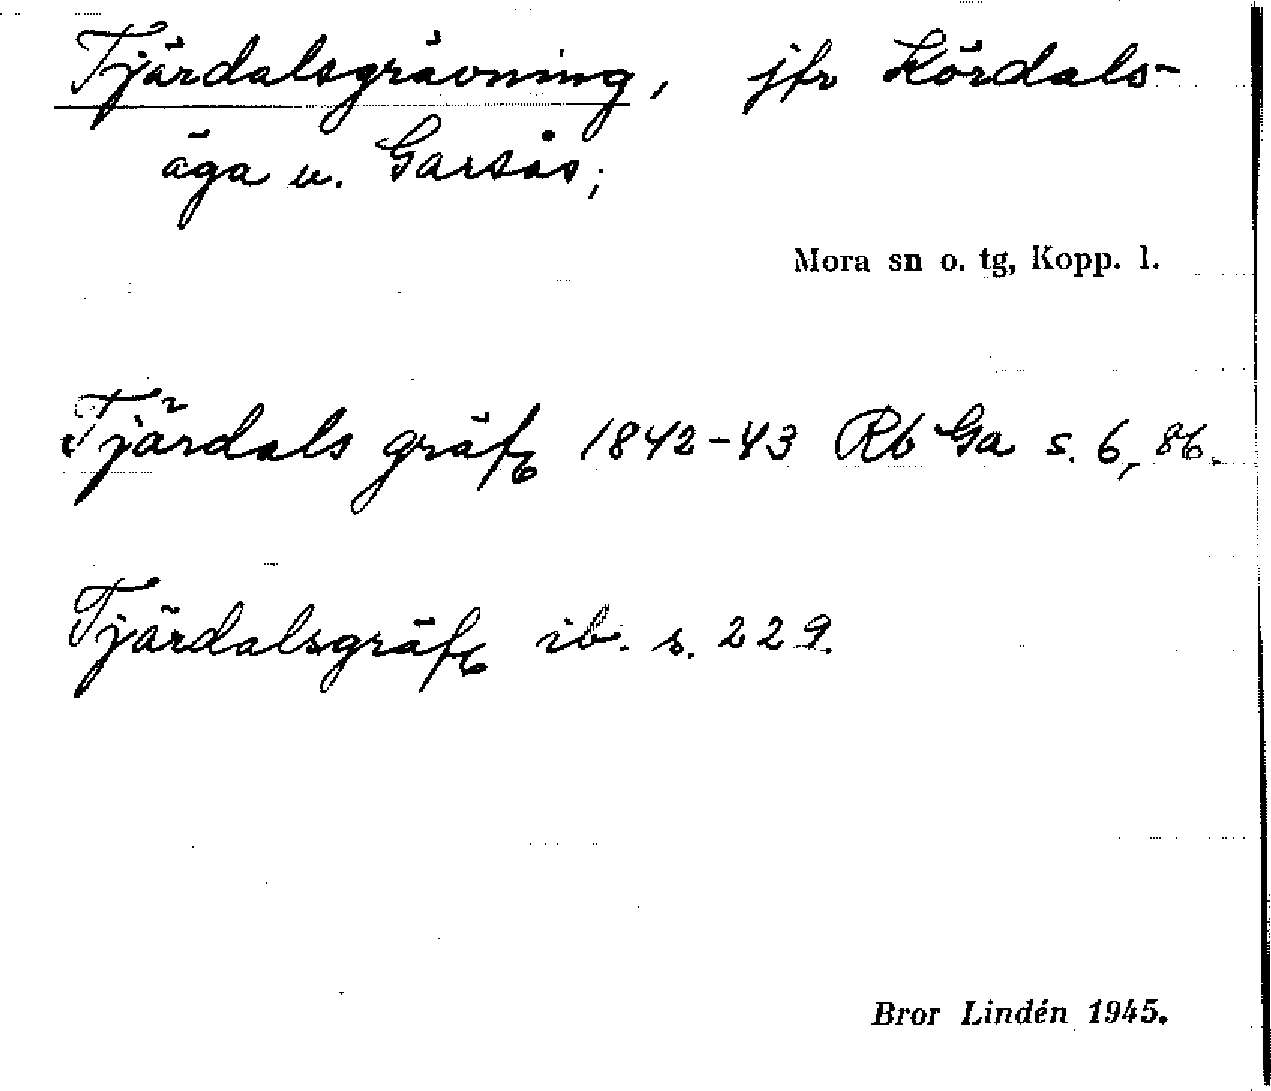 Tjärdalsgrävning, jfr Kördals-
äga u. Garsås;
Mora sn o. tg, Kopp. l.
Tjärdals gräfg 1842-43 Rb Ga s. 6, 86.
Tjärdalsgräfg ib. s. 229.
Bror Lindén 1945.